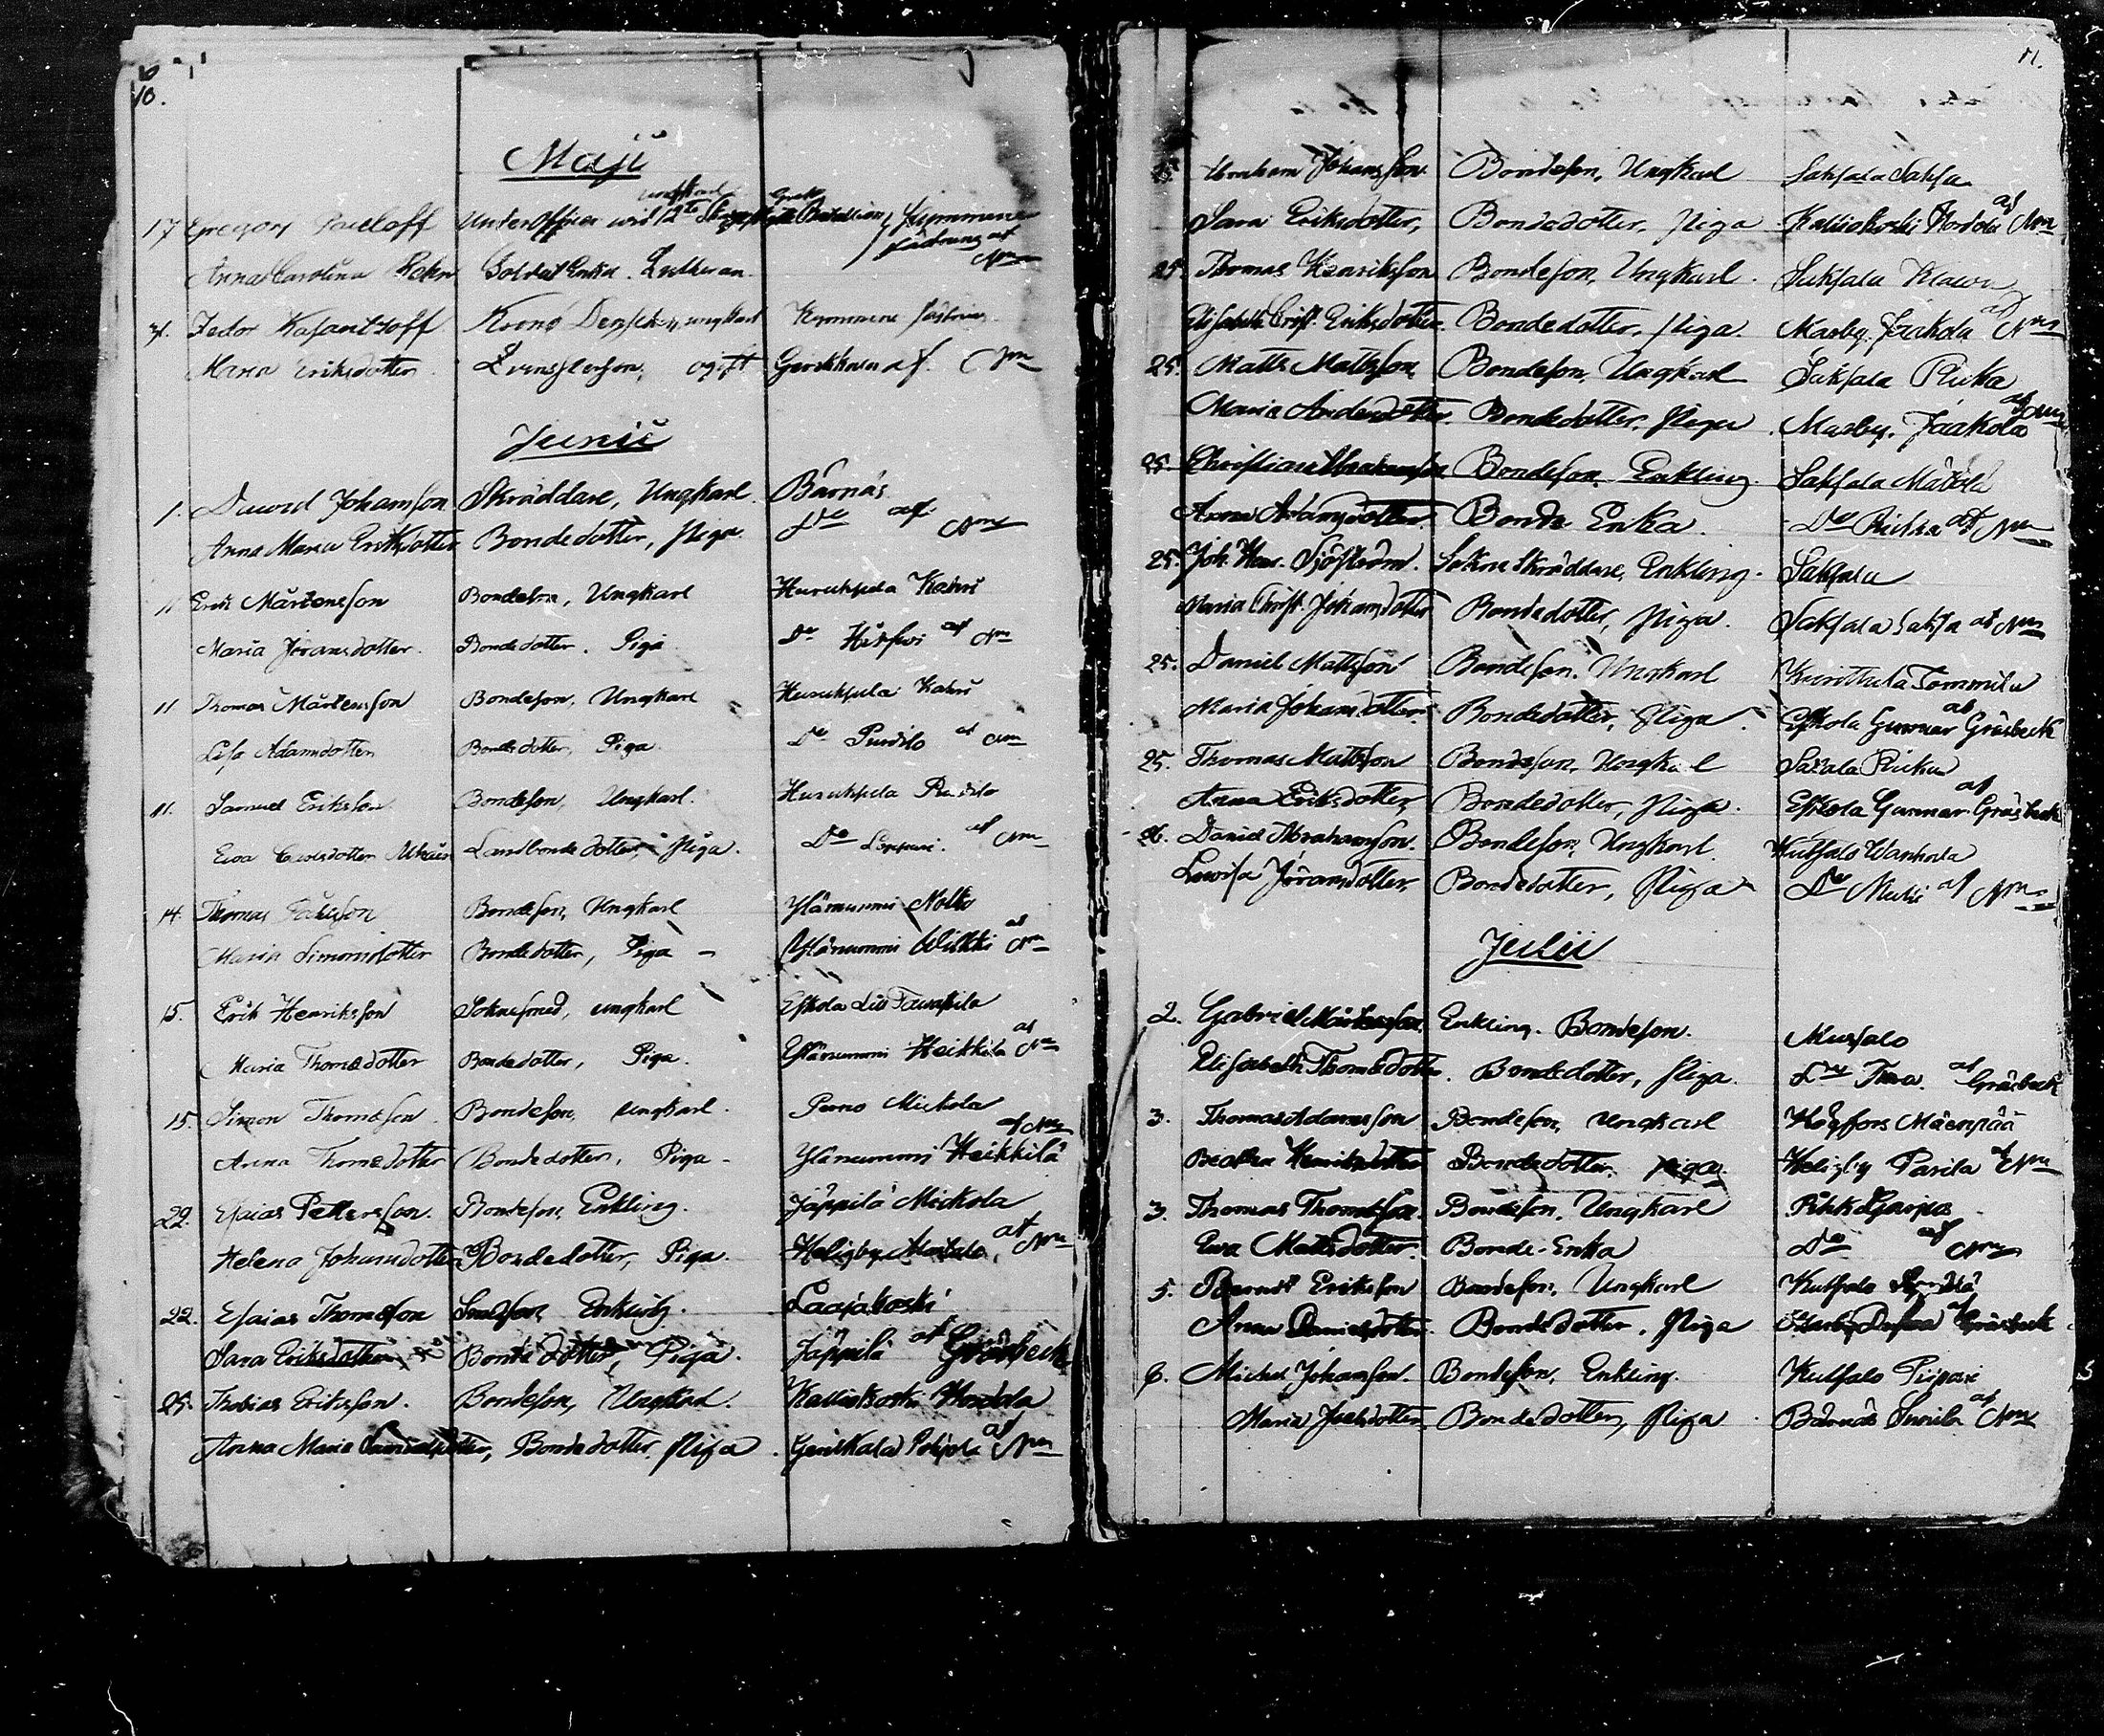 10.
Maji
17 Gregori Pauloff Underofficer wid 12te Bataillion, Kymmene
ungkarl Grek
fästning af Nm
Anna Carolina Soldat Enka. Lutheran.
31. Fedor Kasantsoff Krono ungkarl Kymmene fästning
Maria Eriksdotter ogift af Nm
Junii
1. David Johansson Skräddare, Ungkarl. Barnäs
Anna Maria Eriksdotter Bondedotter, Piga. Do af Nm
11 Erik Mårtensson Bondeson, Ungkarl Huruksela Kahri
Maria Jöransdotter. Bondedotter. Piga Do Hirfwi af Nm
11 Thomas Mårtensson Bondeson, Ungkarl Huruksela Kahri
Lisa Adamsdotter Bondedotter, Piga. Do af Nm
11. Samuel Eriksson Bondeson, Ungkarl. Huruksela
Ewa Landbondedotter, Piga. Do af Nm
14. Thomas Bondeson, Ungkarl Ylänummi Nolko
Maria Simonsdotter Bondedotter, Piga Ylänummi Wilkki af Nm
15. Erik Henriksson Sokne smed, ungkarl Eskola
Maria Thomædotter Bondedotter, Piga. Ylänummi Heikkila af Nm
15. Simon Thomæson. Bondeson, ungkarl. Perno Mickola
Anna Thomædotter Bondedotter, Piga - Ylänummi Heikkilä af Nm
22. Esaias Pettersson. Bondeson, Enkling. Jäppilä Mickola
Helena Johansdotter Bondedotter, Piga. Heligby Mattala, af Nm
22. Esaias Thomæson Enkling. Laajakoski
Sara Eriksdotter Bondedotter, Piga. Jäppilä af Gräsbeck
25. Thobias Eriksson. Bondeson, Ungkarl. Kalliokoski Hordola
Anna Maria Bondedotter, Piga. Pohjola af Nm
11.
Abraham Johansson. Bondeson, Ungkarl Saksala Saksa
Sara Eriksdotter, Bondedotter, Piga Kalliokoski Hordola af Nm
25 Thomas Henriksson Bondeson, Ungkarl. Saksala Klawu
Elisabeth Crist. Eriksdotter. Bondedotter, Piga. Masby. Jaakola af Nm
25. Matts Mattsson, Bondeson, Ungkarl Saksala Ricka
Maria Andersdotter. Bondedotter, Piga. Masby. Jaakola af Nm
25. Christian Abrahamsson Bondeson, Enkling. Saksala Mattola
Anna Adamsdotter. Bonde Enka. Do Ricka af Nm
25. Joh. Henr. Sjöström. Sokne Skräddare, Enkling. Saksala
Maria Christ. Johansdotter Bondedotter, Piga. Saksala Saksa af Nm
25. Daniel Mattsson Bondeson. Ungkarl Kurittula Tommila
Maria Johansdotter Bondedotter, Piga. Eskola Gunnar af Gräsbeck
25. Thomas Mattsson Bondeson, Ungkarl Ricka
Anna Eriksdotter, Bondedotter, Piga. Eskola Gunnar af Gräsbeck
26. Daniel Abrahamsson. Bondeson, Ungkarl. Kutsalo Wanhala
Lowisa Jöransdotter, Bondedotter, Piga Do af Nm
Julii
2. Gabriel Mårtensson. Enkling. Bondeson. Mussalo
Elisabeth Thomædotter. Bondedotter, Piga. Do af Gräsbeck
3. Thomas Adamsson Bondeson, Ungkarl Högfors Mäenpää
Beatha Henriksdotter Bondedotter. Piga Heligby Parila af Nm
3. Thomas Thomæson. Bondeson. Ungkarl
Ewa Mattsdotter. Bonde-Enka Do af Nm
5. Berndt Eriksson Bondeson, Ungkarl Kutsalo
Anna Danielsdotter. Bondedotter, Piga af Gräsbeck
6. Michel Johansson. Bondeson, Enkling. Kutsalo Pirpari
Maria Bondedotter, Piga. Barnäs Sunila af Nm
5